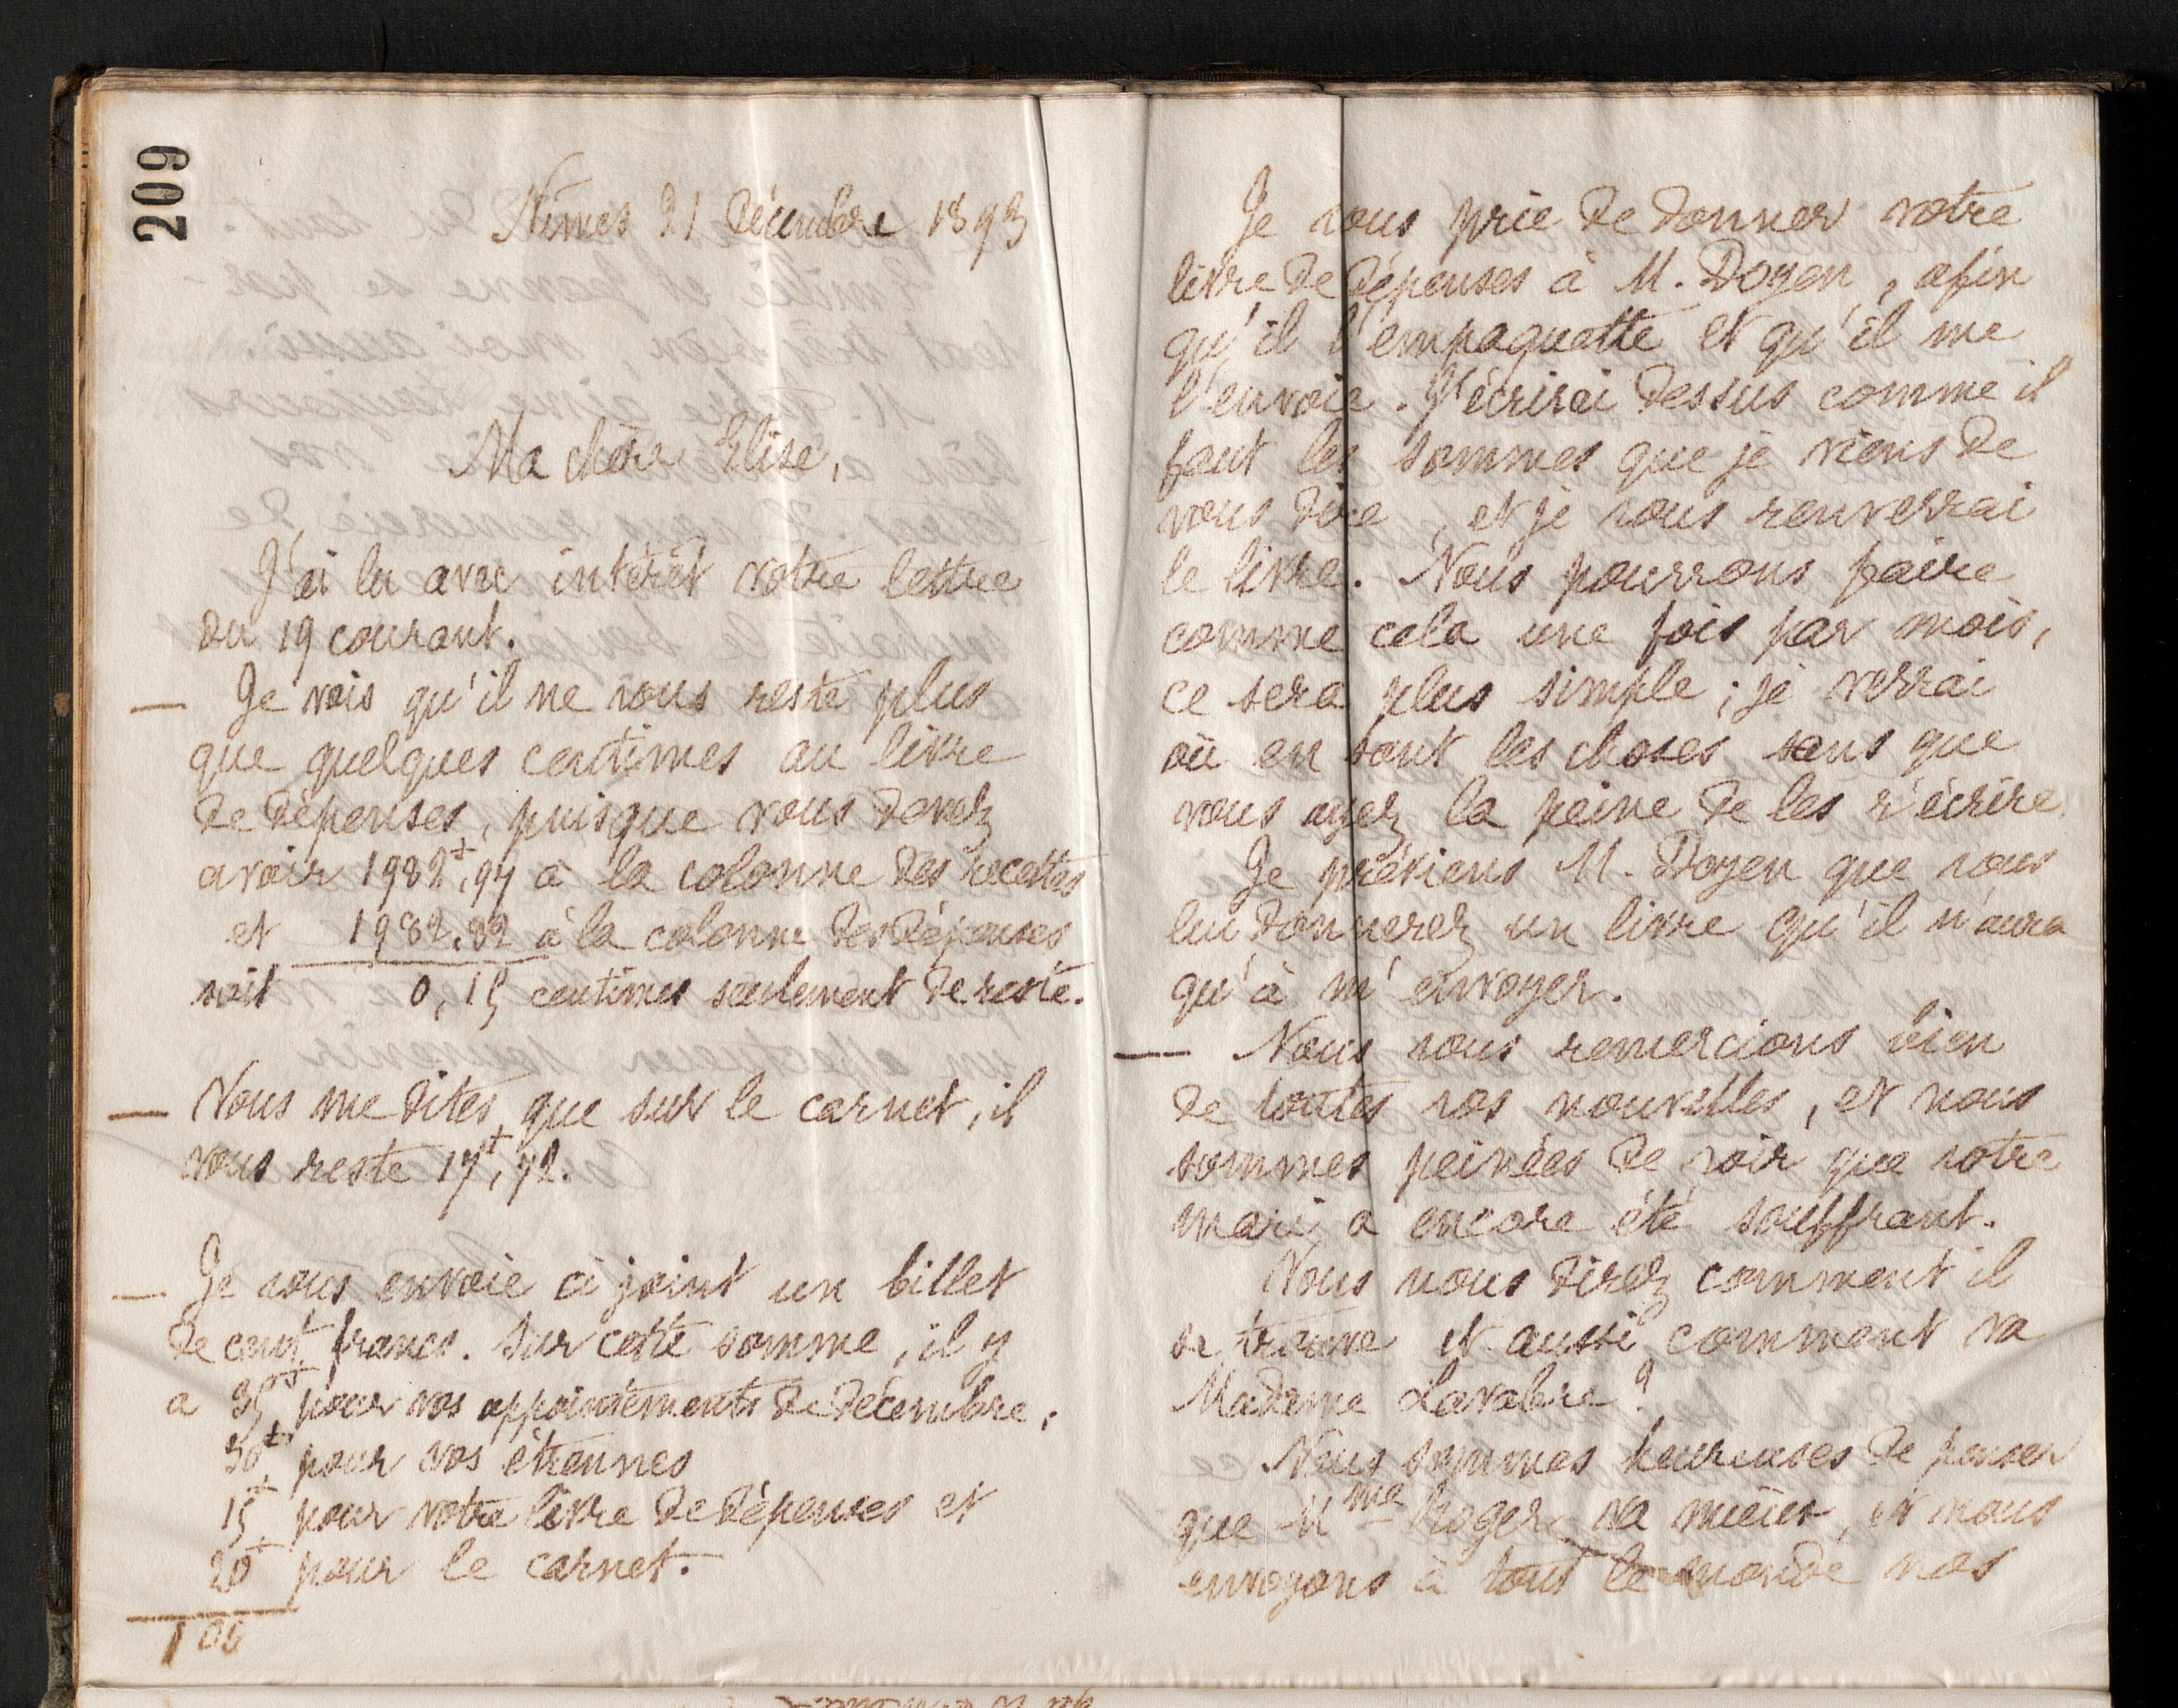 209
Nîmes 21 Décembre 1893
Ma chère Elise,
J'ai lu avec intérêt votre lettre
du 19 courant.
— Je vois qu'il ne vous reste plus
que quelques centimes au livre
de dépenses, puisque vous devez
avoir 1982f,97 à la colonne des recettes
et 1982,82 à la colonne des dépenses
soit 0,15 centimes seulement de reste.
— Vous me dites que sur le carnet, il
vous reste 17f,72.
— Je vous envoie ci joint un billet
de cent francs. Sur cette somme, il y
a 35f pour vos appointements de décembre,
30f pour vos étrennes
15f pour votre livre de dépenses et
20f pour le carnet.
100
Je vous prie de donner votre
livre de dépenses à M. Doyen, afin
qu'il l'empaquette et qu'il me
l'envoie. J'écrirai dessus comme il
faut les sommes que je viens de
vous dire, et je vous renverrai
le livre. Nous pourrons faire
comme cela une fois par mois,
ce sera plus simple ; je verrai
où en sont les choses sans que
vous ayez la peine de les r'écrire.
Je préviens M. Doyen que vous
lui donnerez un livre qu'il n'aura
qu'à m'envoyer.
— Nous vous remercions bien
de toutes vos nouvelles, et nous
sommes peinées de voir que votre
mari a encore été souffrant.
Vous nous direz comment il
se trouve et aussi comment va
Madame Lavabre ?
Nous sommes heureuses de penser
que Mme Roger va mieux, et nous
envoyons à tout le monde nos